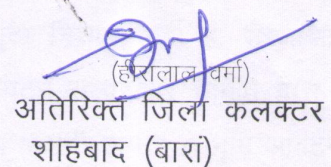 (हीरालाल वर्मा)
अतिरिक्त जिला कलक्टर
शाहबाद (बारां)